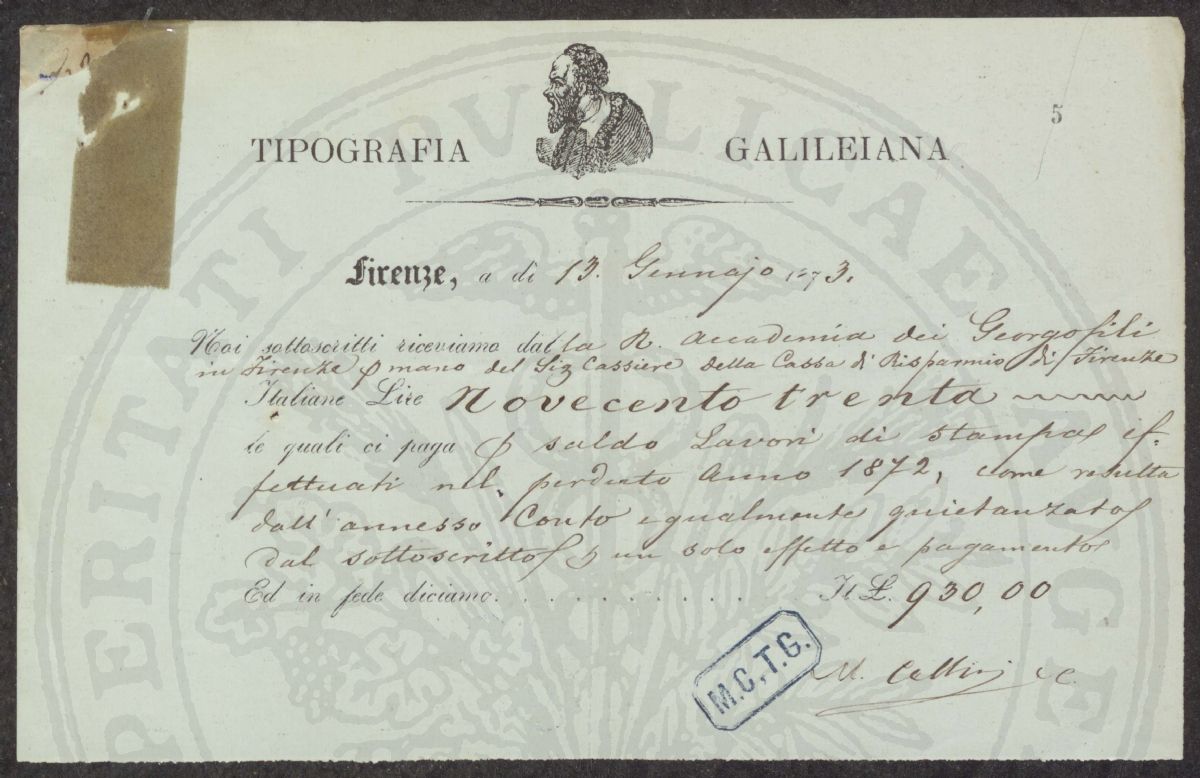 5
TIPOGRAFIA GALILEIANA
Firenze, a dì 13. Gennajo 1873.
Noi sottoscritti riceviamo dalla R. Accademia dei Georgofili
in Firenze p mano del Sig Cassiere della Cassa di Risparmio di Firenze
Italiane Lire Novecentotrenta
le quali ci paga p saldo Lavori di stampa ef-
fettuati nel perduto Anno 1872, come resulta
dall' annesso Conto egualmente quietanzato
dal sottoscritto p un solo effetto e pagamento
Ed in fede diciamo. . . . . . . . . . . . . It L. 930,00
M.C.T.G.
M. Cellini e C.
PERITATI PVBLICAE AVGE